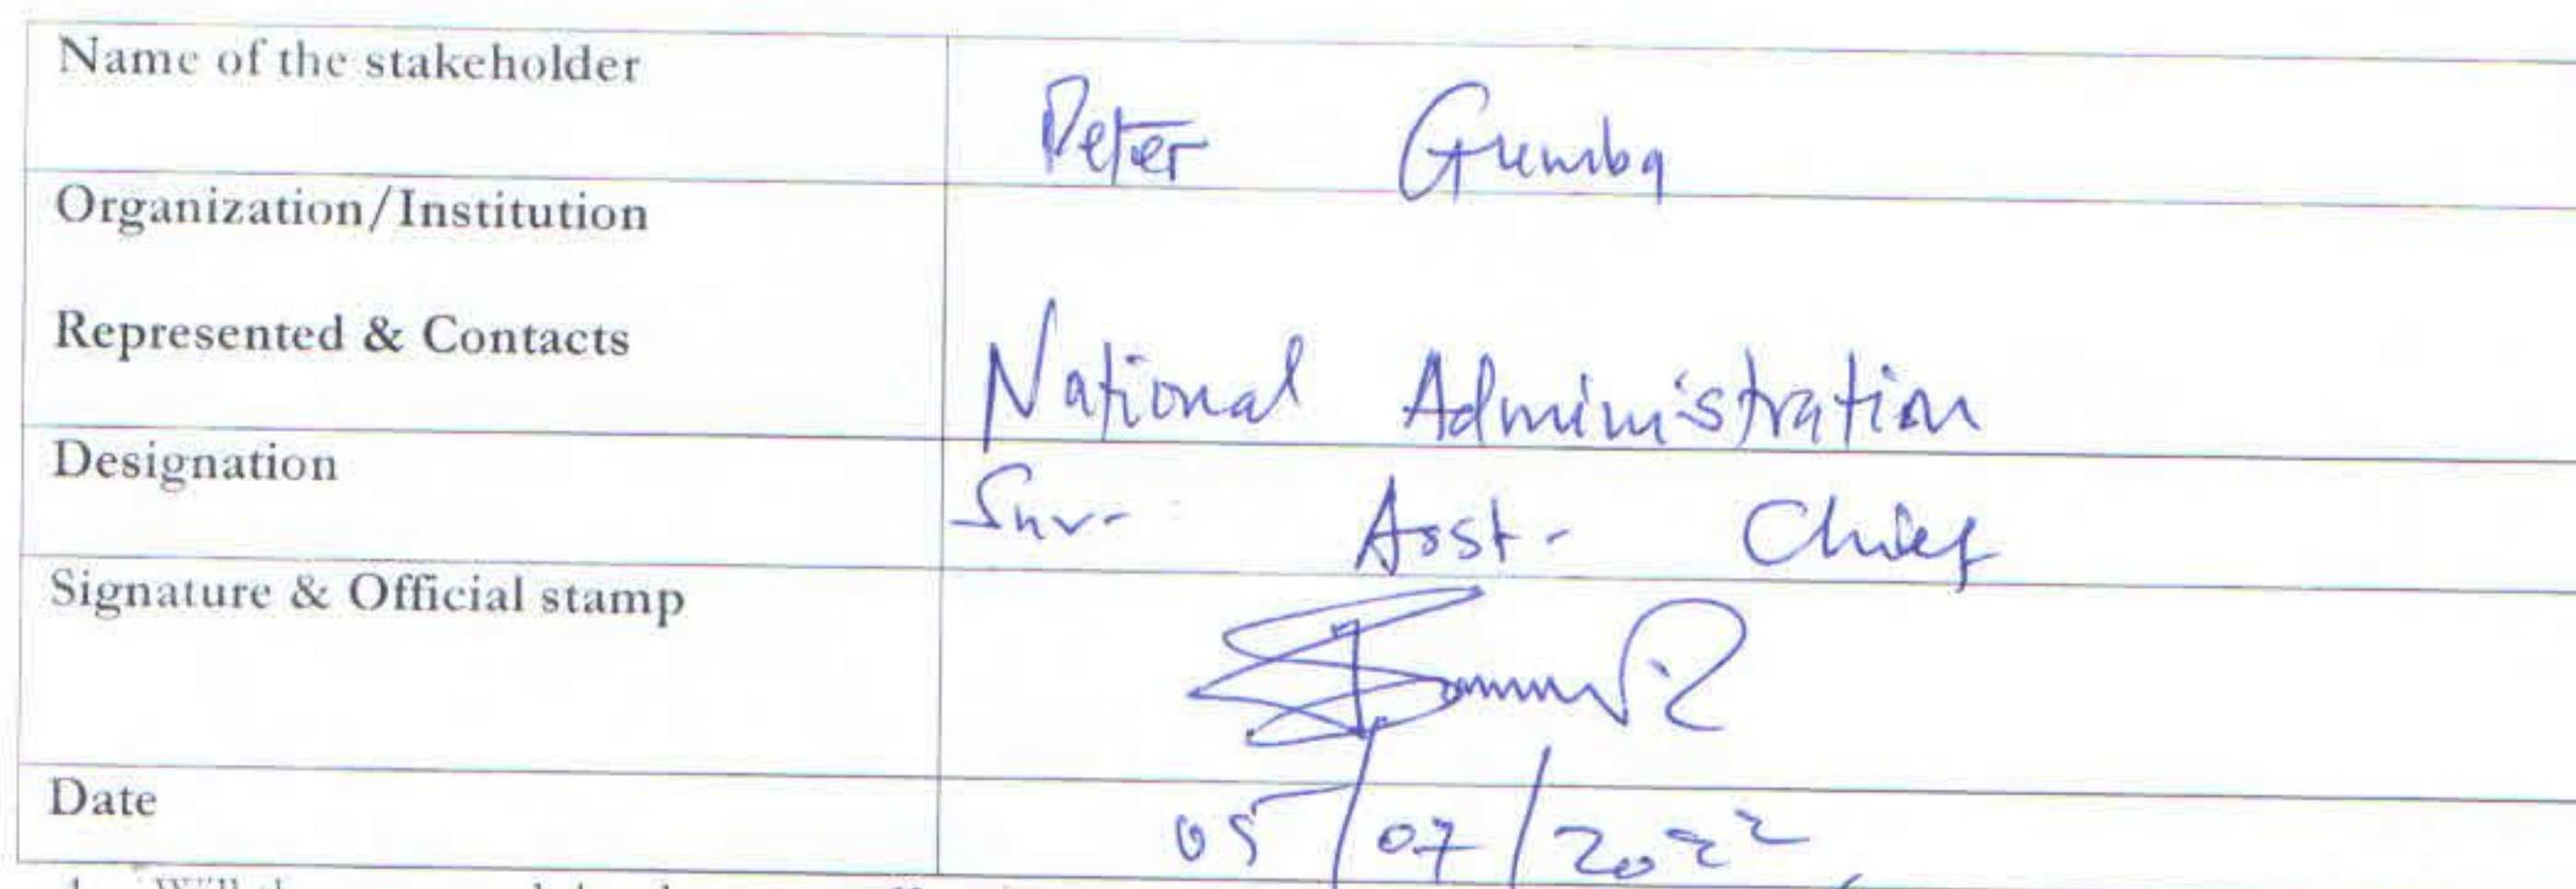 Name of the stakeholder
Peter Gumba
Organization/Institution
Represented & Contacts
National Administration
Designation
Snr- Asst- Chief
Signature & Official stamp
Date
05/07/2022